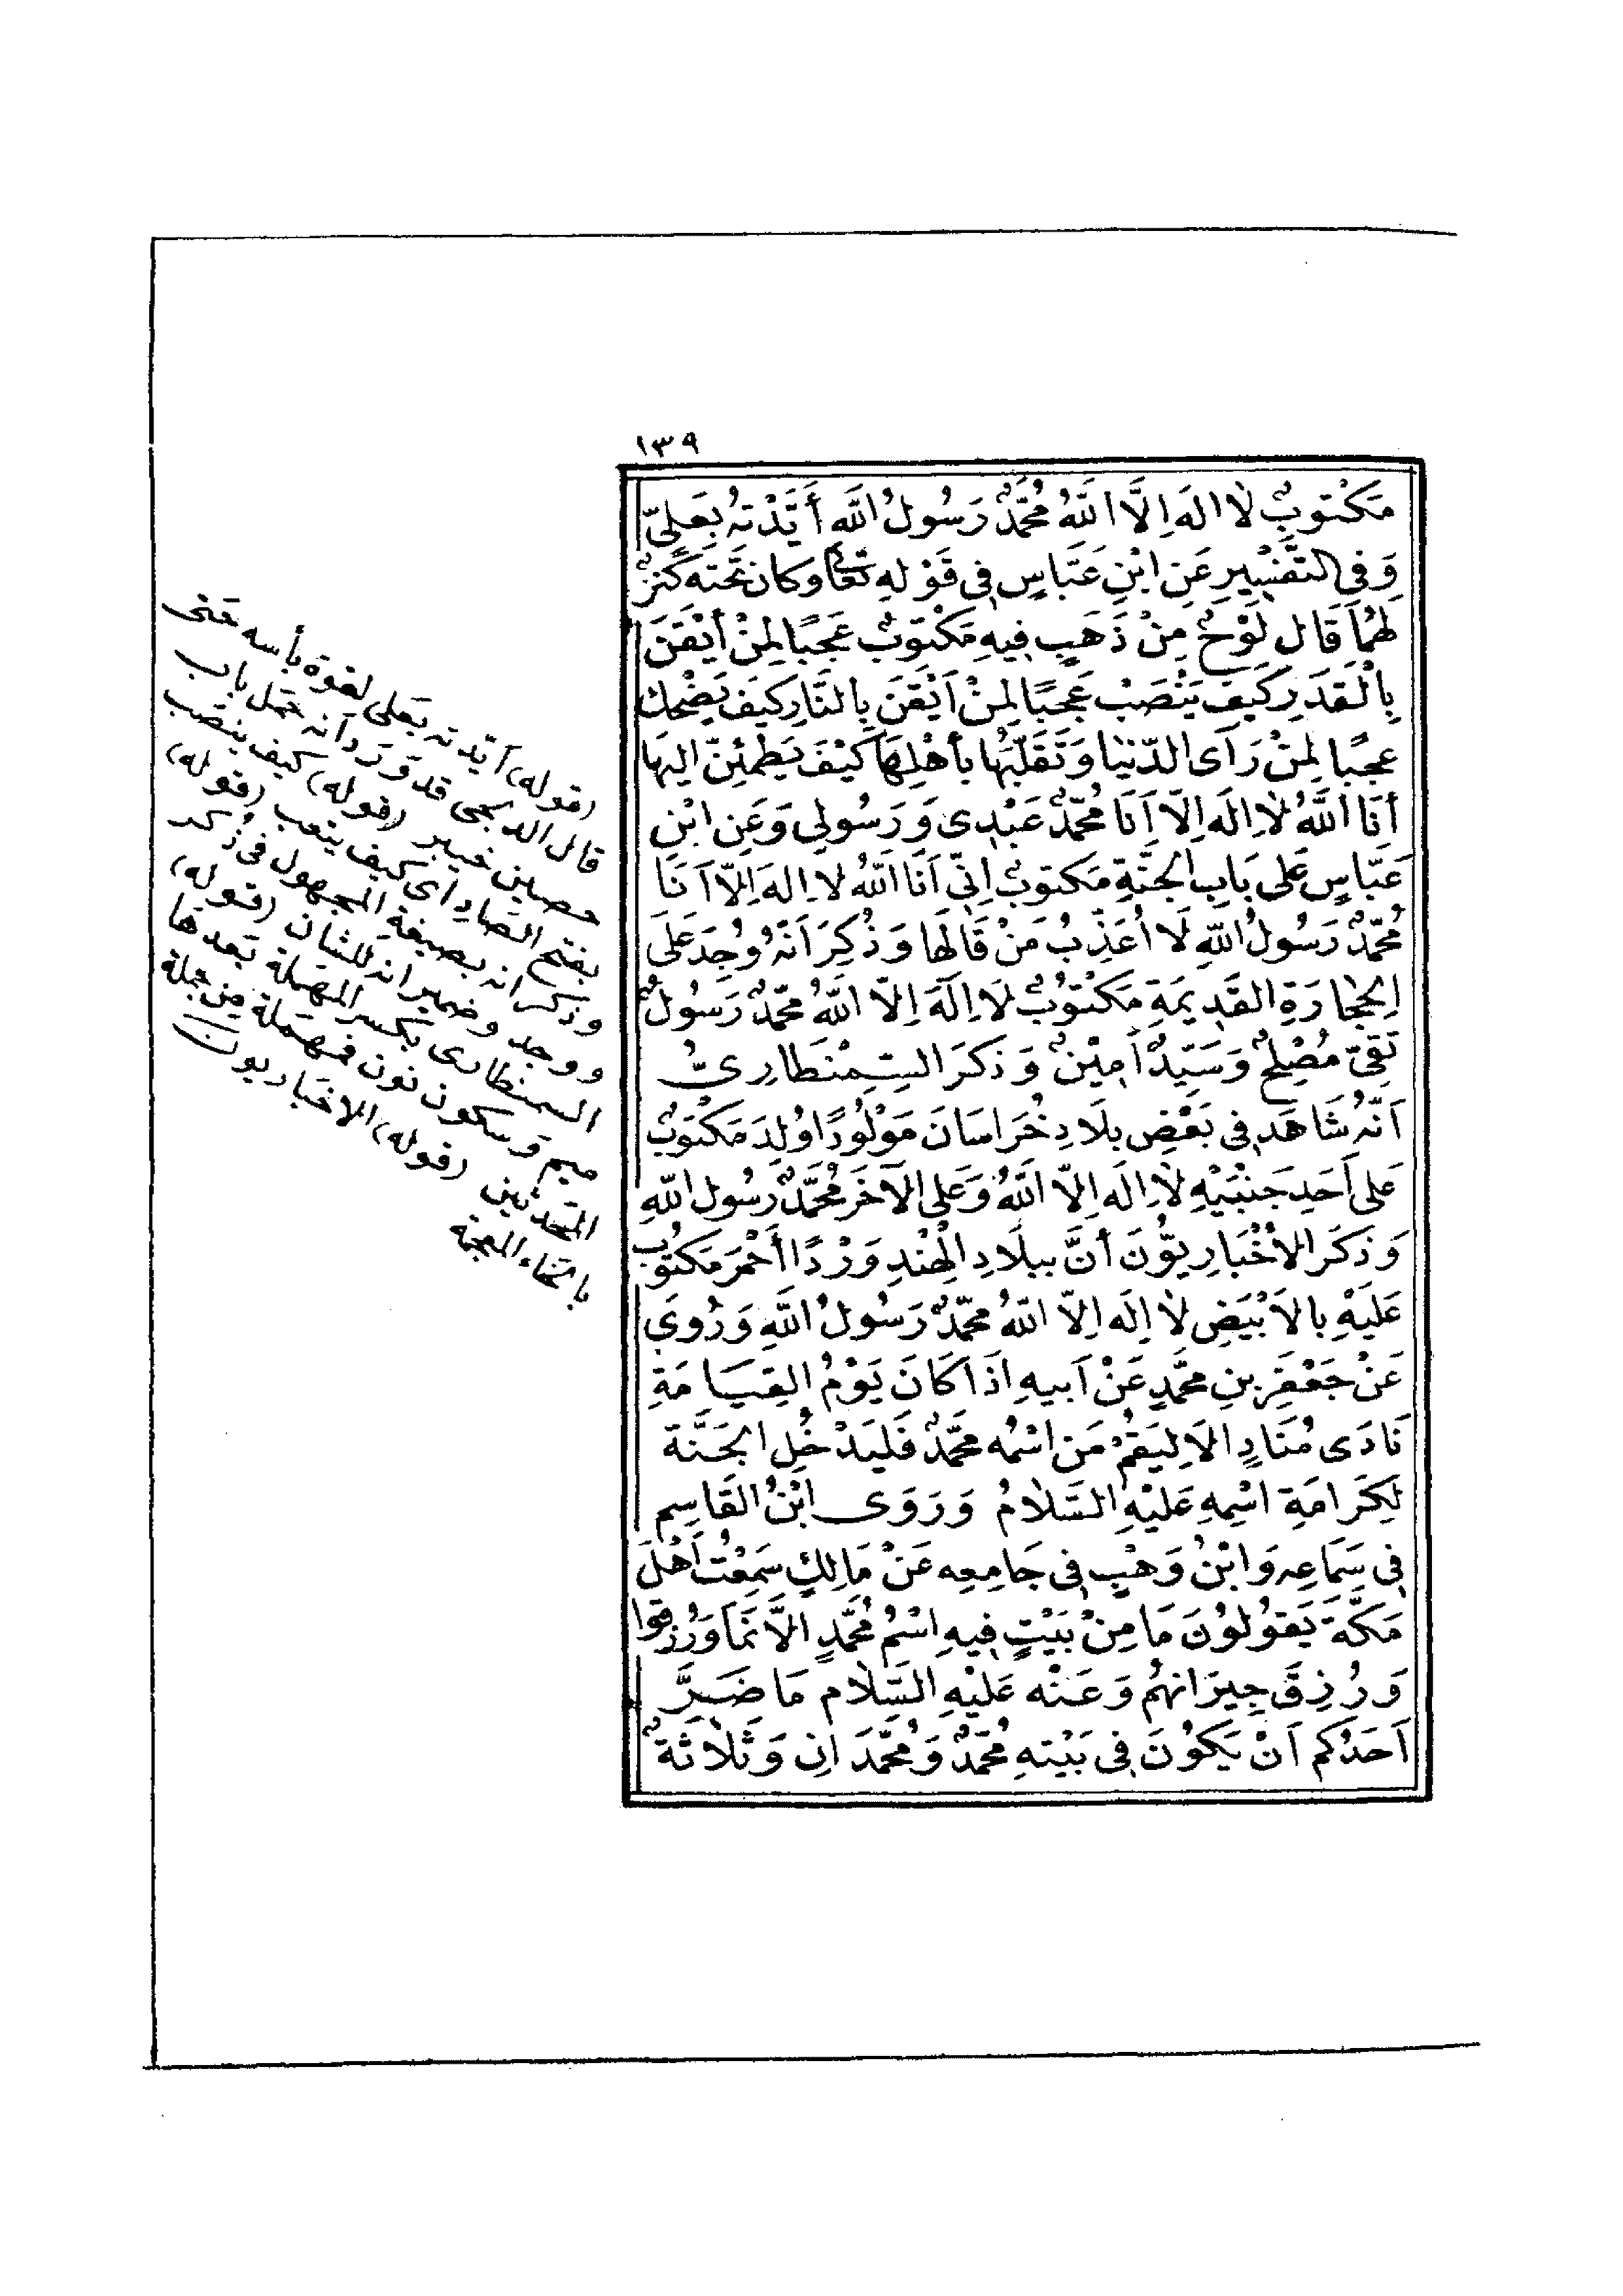 ١٣٩
مَكْتُوبٌ لَا اِلَهَ اِلَّا اللَّهُ مُحَمَّدٌ رَسُولُ اللَّهِ أَيَّدْتُهُ بِعَلِيٍّ
وَفِي التَّفْسِيرِ عَنِ ابْنِ عَبَّاسٍ فِي قَوْلِهِ تَعَالَى وَكَانَ تَحْتَهُ كَنْزٌ
لَهُمَا قَالَ لَوْحٌ مِنْ ذَهَبٍ فِيهِ مَكْتُوبٌ عَجَبًا لِمَنْ أَيْقَنَ
بِالْقَدَرِ كَيْفَ يَنْصَبُ عَجَبًا لِمَنْ أَيْقَنَ بِالنَّارِ كَيْفَ يَضْحَكُ
عَجَبًا لِمَنْ رَأَى الدُّنْيَا وَتَقَلُّبَهَا بِأَهْلِهَا كَيْفَ يَطْمَئِنُّ اِلَيْهَا
أَنَا اللَّهُ لَا اِلَهَ اِلَّا أَنَا مُحَمَّدٌ عَبْدِى وَرَسُولِى وَعَنِ ابْنِ
عَبَّاسٍ عَلَى بَابِ الْجَنَّةِ مَكْتُوبٌ اِنِّى أَنَا اللَّهُ لَا اِلَهَ اِلَّا أَنَا
مُحَمَّدٌ رَسُولُ اللَّهِ لَا اُعَذِّبُ مَنْ قَالَهَا وَذُكِرَ أَنَّهُ وُجِدَ عَلَى
الْحِجَارَةِ الْقَدِيمَةِ مَكْتُوبٌ لَا اِلَهَ اِلَّا اللَّهُ مُحَمَّدٌ رَسُولٌ
تَقِىٌّ مُصْلِحٌ وَسَيِّدٌ أَمِينٌ وَذَكَرَ السِّمِنْطَارِىُّ
أَنَّهُ شَاهَدَ فِى بَعْضِ بِلَادِ خُرَاسَانَ مَوْلُودًا وُلِدَ مَكْتُوبٌ
عَلَى أَحَدِ جَنْبَيْهِ لَا اِلَهَ اِلَّا اللَّهُ وَعَلَى الْآخَرِ مُحَمَّدٌ رَسُولُ اللَّهِ
وَذَكَرَ الْأَخْبَارِيُّونَ أَنَّ بِبِلَادِ الْهِنْدِ وَرْدًا أَحْمَرَ مَكْتُوبٌ
عَلَيْهِ بِالْأَبْيَضِ لَا اِلَهَ اِلَّا اللَّهُ مُحَمَّدٌ رَسُولُ اللَّهِ وَرُوِىَ
عَنْ جَعْفَرِ بْنِ مُحَمَّدٍ عَنْ أَبِيهِ اِذَا كَانَ يَوْمُ الْقِيَامَةِ
نَادَى مُنَادٍ اَلَا لِيَقُمْ مَنِ اسْمُهُ مُحَمَّدٌ فَلْيَدْخُلِ الْجَنَّةَ
لِكَرَامَةِ اسْمِهِ عَلَيْهِ السَّلَامُ وَرَوَى ابْنُ الْقَاسِمِ
فِى سَمَاعِهِ وَابْنُ وَهْبٍ فِى جَامِعِهِ عَنْ مَالِكٍ سَمِعْتُ أَهْلَ
مَكَّةَ يَقُولُونَ مَا مِنْ بَيْتٍ فِيهِ اسْمُ مُحَمَّدٍ اِلَّا نَمَا وَرُزِقُوا
وَرُزِقَ جِيرَانُهُمْ وَعَنْهُ عَلَيْهِ السَّلَام مَا ضَرَّ
أَحَدَكُم أَنْ يَكُونَ فِى بَيْتِهِ مُحَمَّدٌ وَمُحَمَّدَانِ وَثَلَاثَةٌ
(قوله) أيدته بعلى لقوة بأسه حتى
قال الدلجى قد ورد أنه حمل باب
حصين خيبر (قوله) كيف ينصب
بفتح الصاد اى كيف يتعب (قوله)
وذكر انه بصيغة المجهول فى ذكر
ووجد وضمير انه للشان (قوله)
السمنطارى بكسر المهملة بعدها
ميم وسكون نون فمهملة من جملة
المحدثين (قوله) الاخباريون
بالخاء المعجمة